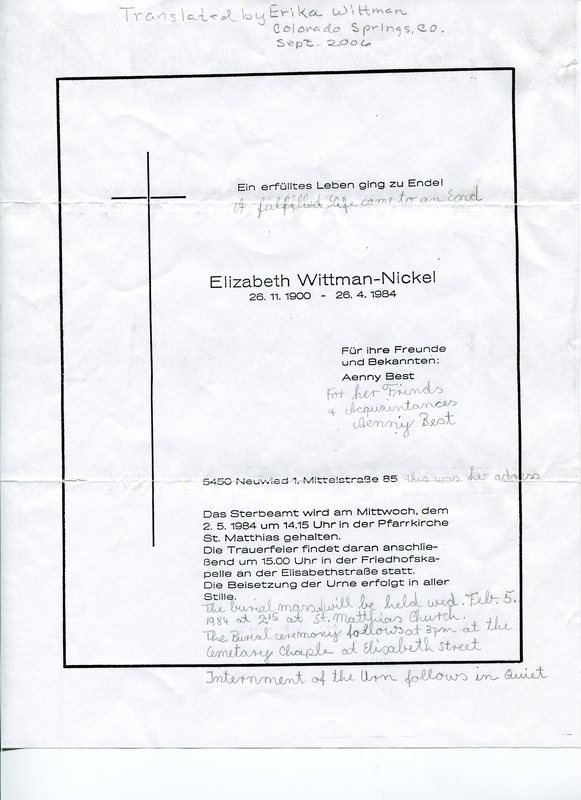 Translated by Erika Wittman
Colorado Springs, CO.
Sept. 2006
Ein erfülltes Leben ging zu Ende!
A fulfilled Life came to an End
Elizabeth Wittman-Nickel
26. 11. 1900 - 26. 4. 1984
Für ihre Freunde
und Bekannten:
Aenny Best
For her Frinds
+ Acquaintances
Aenny Best
5450 Neuwied 1, Mittelstraße 85 this was her adress
Das Sterbeamt wird am Mittwoch, dem
2. 5. 1984 um 14.15 Uhr in der Pfarrkirche
St. Matthias gehalten.
Die Trauerfeier findet daran anschlie-
ßend um 15.00 Uhr in der Friedhofska-
pelle an der Elisabethstraße statt.
Die Beisetzung der Urne erfolgt in aller
Stille.
The burial mass will be held wed. Feb. 5.
1984 at 2:15 at St. Matthias Church.
The Burial ceremony follows at 3pm at the
Cemetary Chaple at Elisabeth Street
Internment of the Urn follows in Quiet